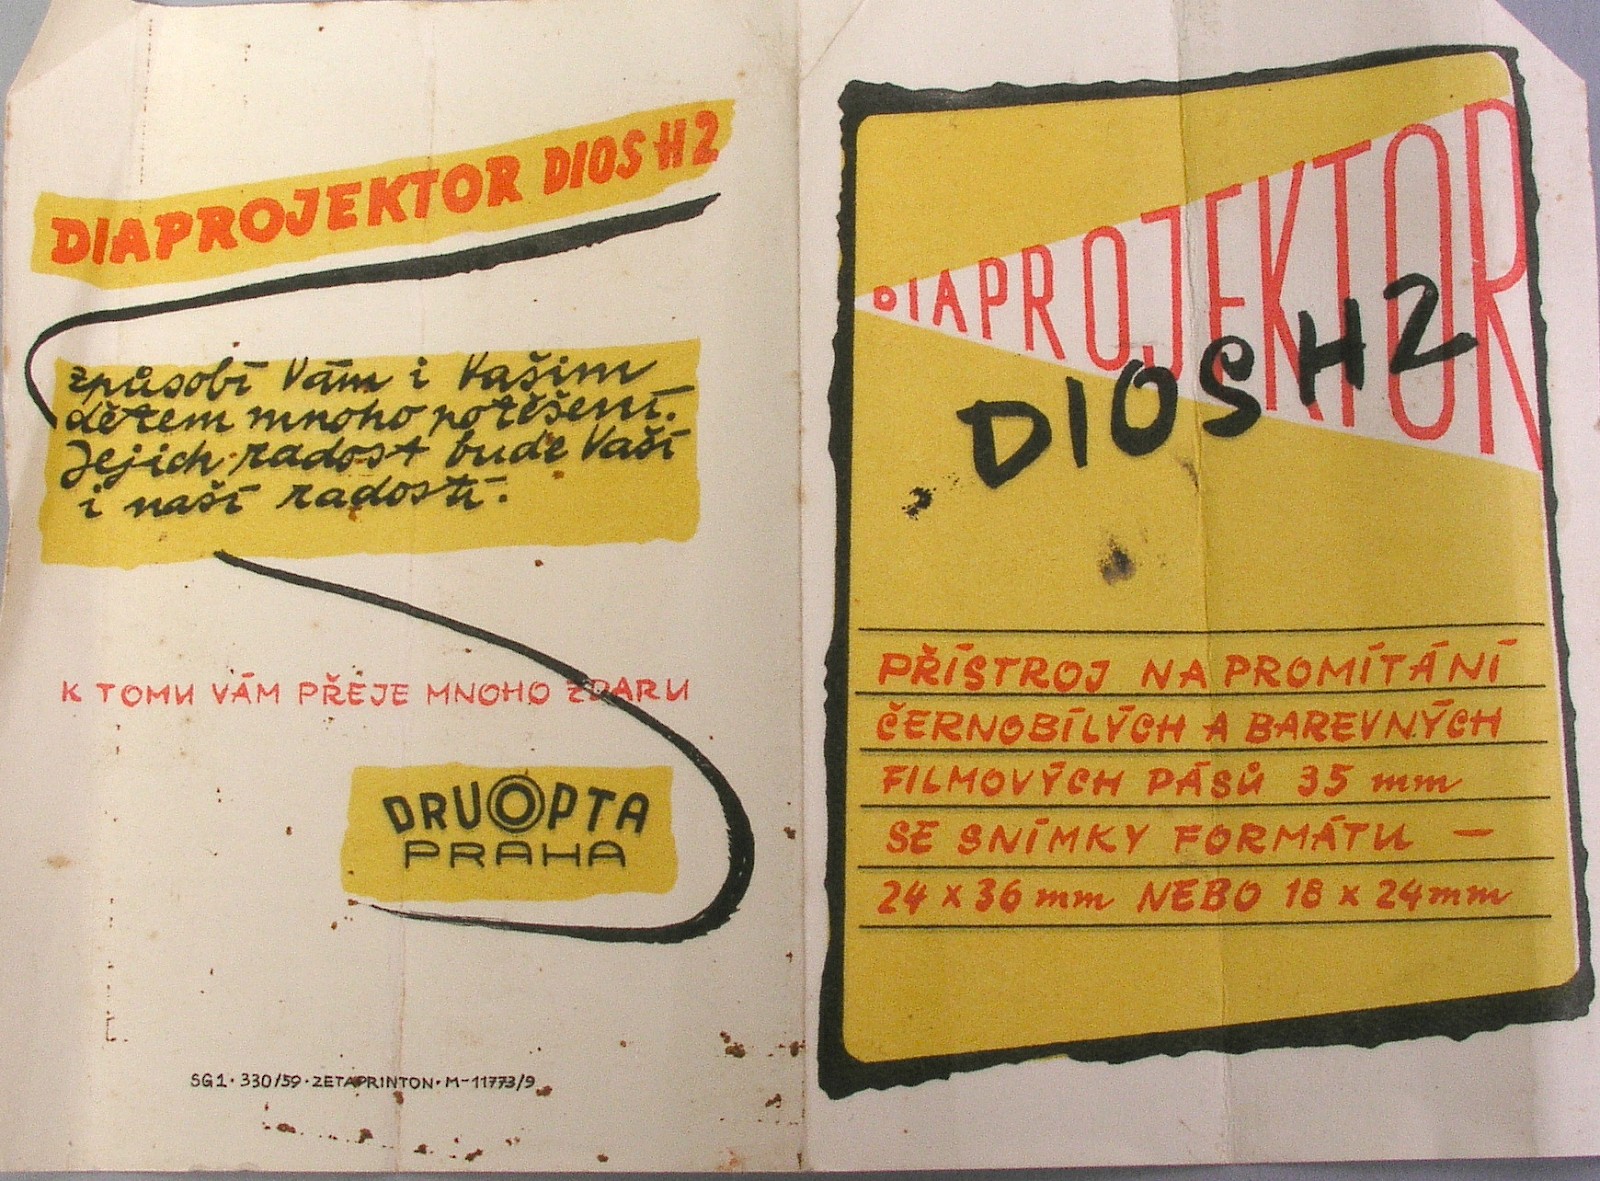 DIAPROJEKTOR DIOS H2
způsobí Vám i Vašim
dětem mnoho potěšení.
Jejich radost bude Vaší
i naší radostí.
K TOMU VÁM PŘEJE MNOHO ZDARU
DRUOPTA
PRAHA
SG1·330/59·ZETAPRINTON·M-11773/9
DIAPROJEKTOR
DIOS H2
PŘÍSTROJ NA PROMÍTÁNÍ
ČERNOBÍLÝCH A BAREVNÝCH
FILMOVÝCH PÁSŮ 35 mm
SE SNÍMKY FORMÁTU —
24 x 36 mm NEBO 18 x 24 mm